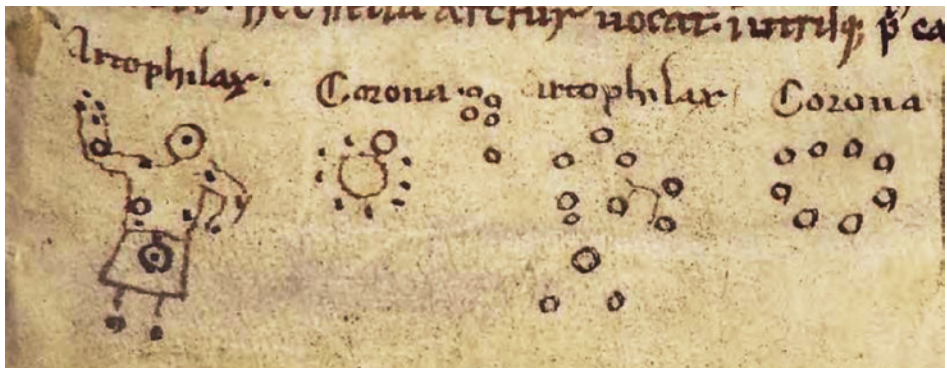 arctur uocat
Artophilax. Corona artophilax Corona